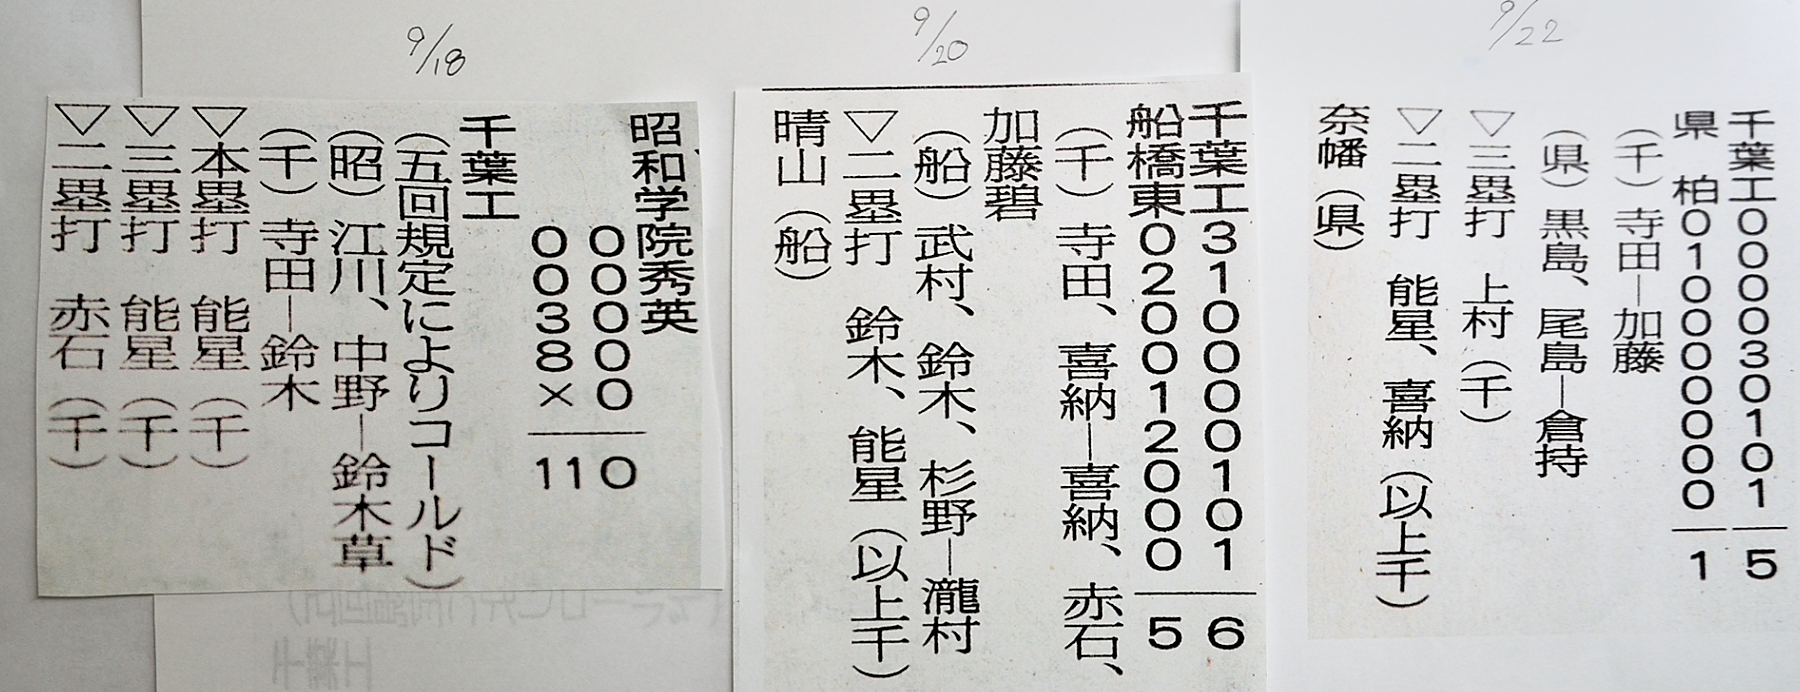 9/18
昭和学院秀英
00000 0
0038× 11
千葉工
（五回規定によりコールド）
（昭）江川、中野―鈴木草
（千）寺田―鈴木
▽本塁打 能星（千）
▽三塁打 能星（千）
▽二塁打 赤石（千）
9/20
千葉工310000101 6
船橋東020012000 5
（千）寺田、喜納―喜納、赤石、
加藤碧
（船）武村、鈴木、杉野―瀧村
▽二塁打 鈴木、能星（以上千）
晴山（船）
9/22
千葉工000030101 5
県 柏010000000 1
（千）寺田―加藤
（県）黒島、尾島―倉持
▽三塁打 上村（千）
▽二塁打 能星、喜納（以上千）
奈幡（県）